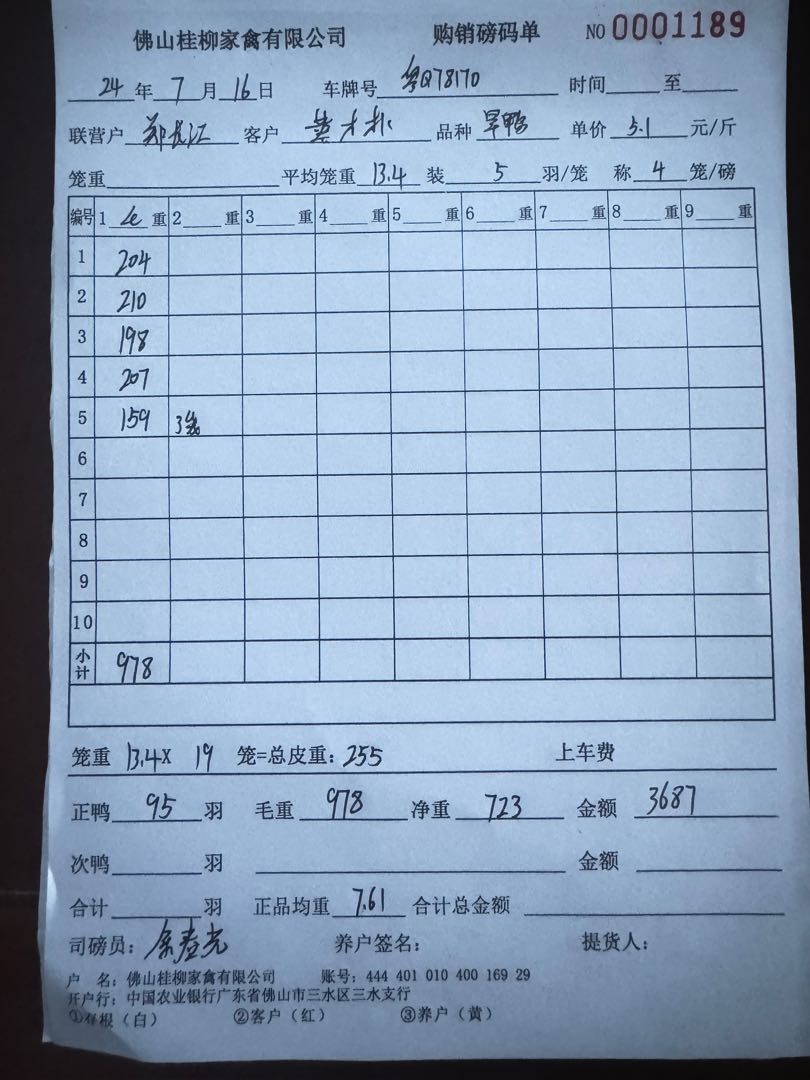 佛山桂柳家禽有限公司 购销磅码单 NO 0001189
24 年 7 月 16 日 车牌号 粤Q78170 时间 至
联营户 郑长江 客户 品种 旱鸭 单价 5.1 元/斤
笼重 平均笼重 13.4 装 5 羽/笼 称 4 笼/磅
编号 1 重 2 重 3 重 4 重 5 重 6 重 7 重 8 重 9 重
1 204
2 210
3 198
4 207
5 159 3笼
6
7
8
9
10
小计 978
笼重 13.4X 19 笼=总皮重: 255 上车费
正鸭 95 羽 毛重 978 净重 723 金额 3687
次鸭 羽 金额
合计 羽 正品均重 7.61 合计总金额
司磅员: 养户签名: 提货人:
户 名: 佛山桂柳家禽有限公司 账号: 444 401 010 400 169 29
开户行: 中国农业银行广东省佛山市三水区三水支行
①存根(白) ②客户(红) ③养户(黄)